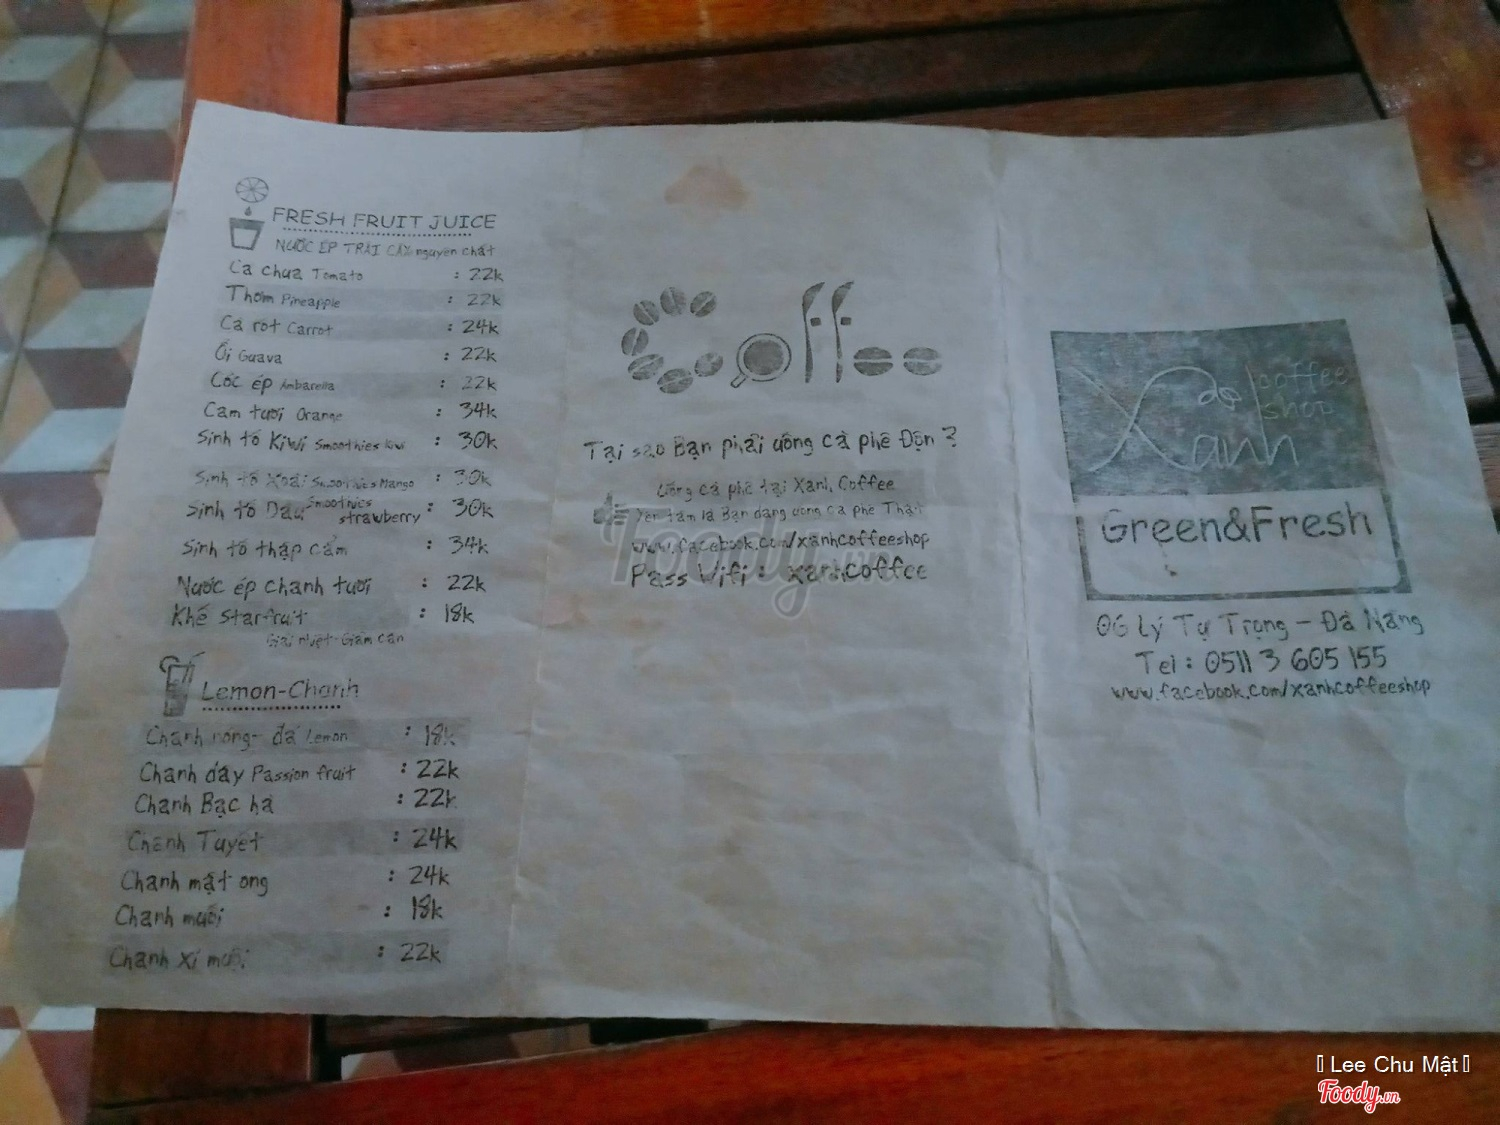 FRESH FRUIT JUICE
NƯỚC ÉP TRÁI CÂY nguyên chất
Cà chua Tomato : 22k
Thơm Pineapple : 22k
Cà rốt Carrot : 24k
Ổi Guava : 22k
Cóc ép Ambarella : 22k
Cam tươi Orange : 34k
Sinh tố Kiwi Smoothies Kiwi : 30k
Sinh tố Xoài Smoothies Mango : 30k
Sinh tố Dâu Smoothies strawberry : 30k
Sinh tố thập cẩm : 34k
Nước ép chanh tươi : 22k
Khế Starfruit : 18k
Giải nhiệt-Giảm cân
Lemon-Chanh
Chanh nóng- đá Lemon : 18k
Chanh dây Passion fruit : 22k
Chanh Bạc hà : 22k
Chanh Tuyết : 24k
Chanh mật ong : 24k
Chanh muối : 18k
Chanh xí muội : 22k
Coffee
Tại sao Bạn phải uống cà phê Độn ?
Uống cà phê tại Xanh Coffee
Yên tâm là Bạn đang uống cà phê Thật
www.facebook.com/xanhcoffeeshop
Pass Wifi : xanhcoffee
Foody.vn
Xanh coffee shop
Green&Fresh
06 Lý Tự Trọng - Đà Nẵng
Tel : 0511 3 605 155
www.facebook.com/xanhcoffeeshop
Lee Chu Mật
Foody.vn